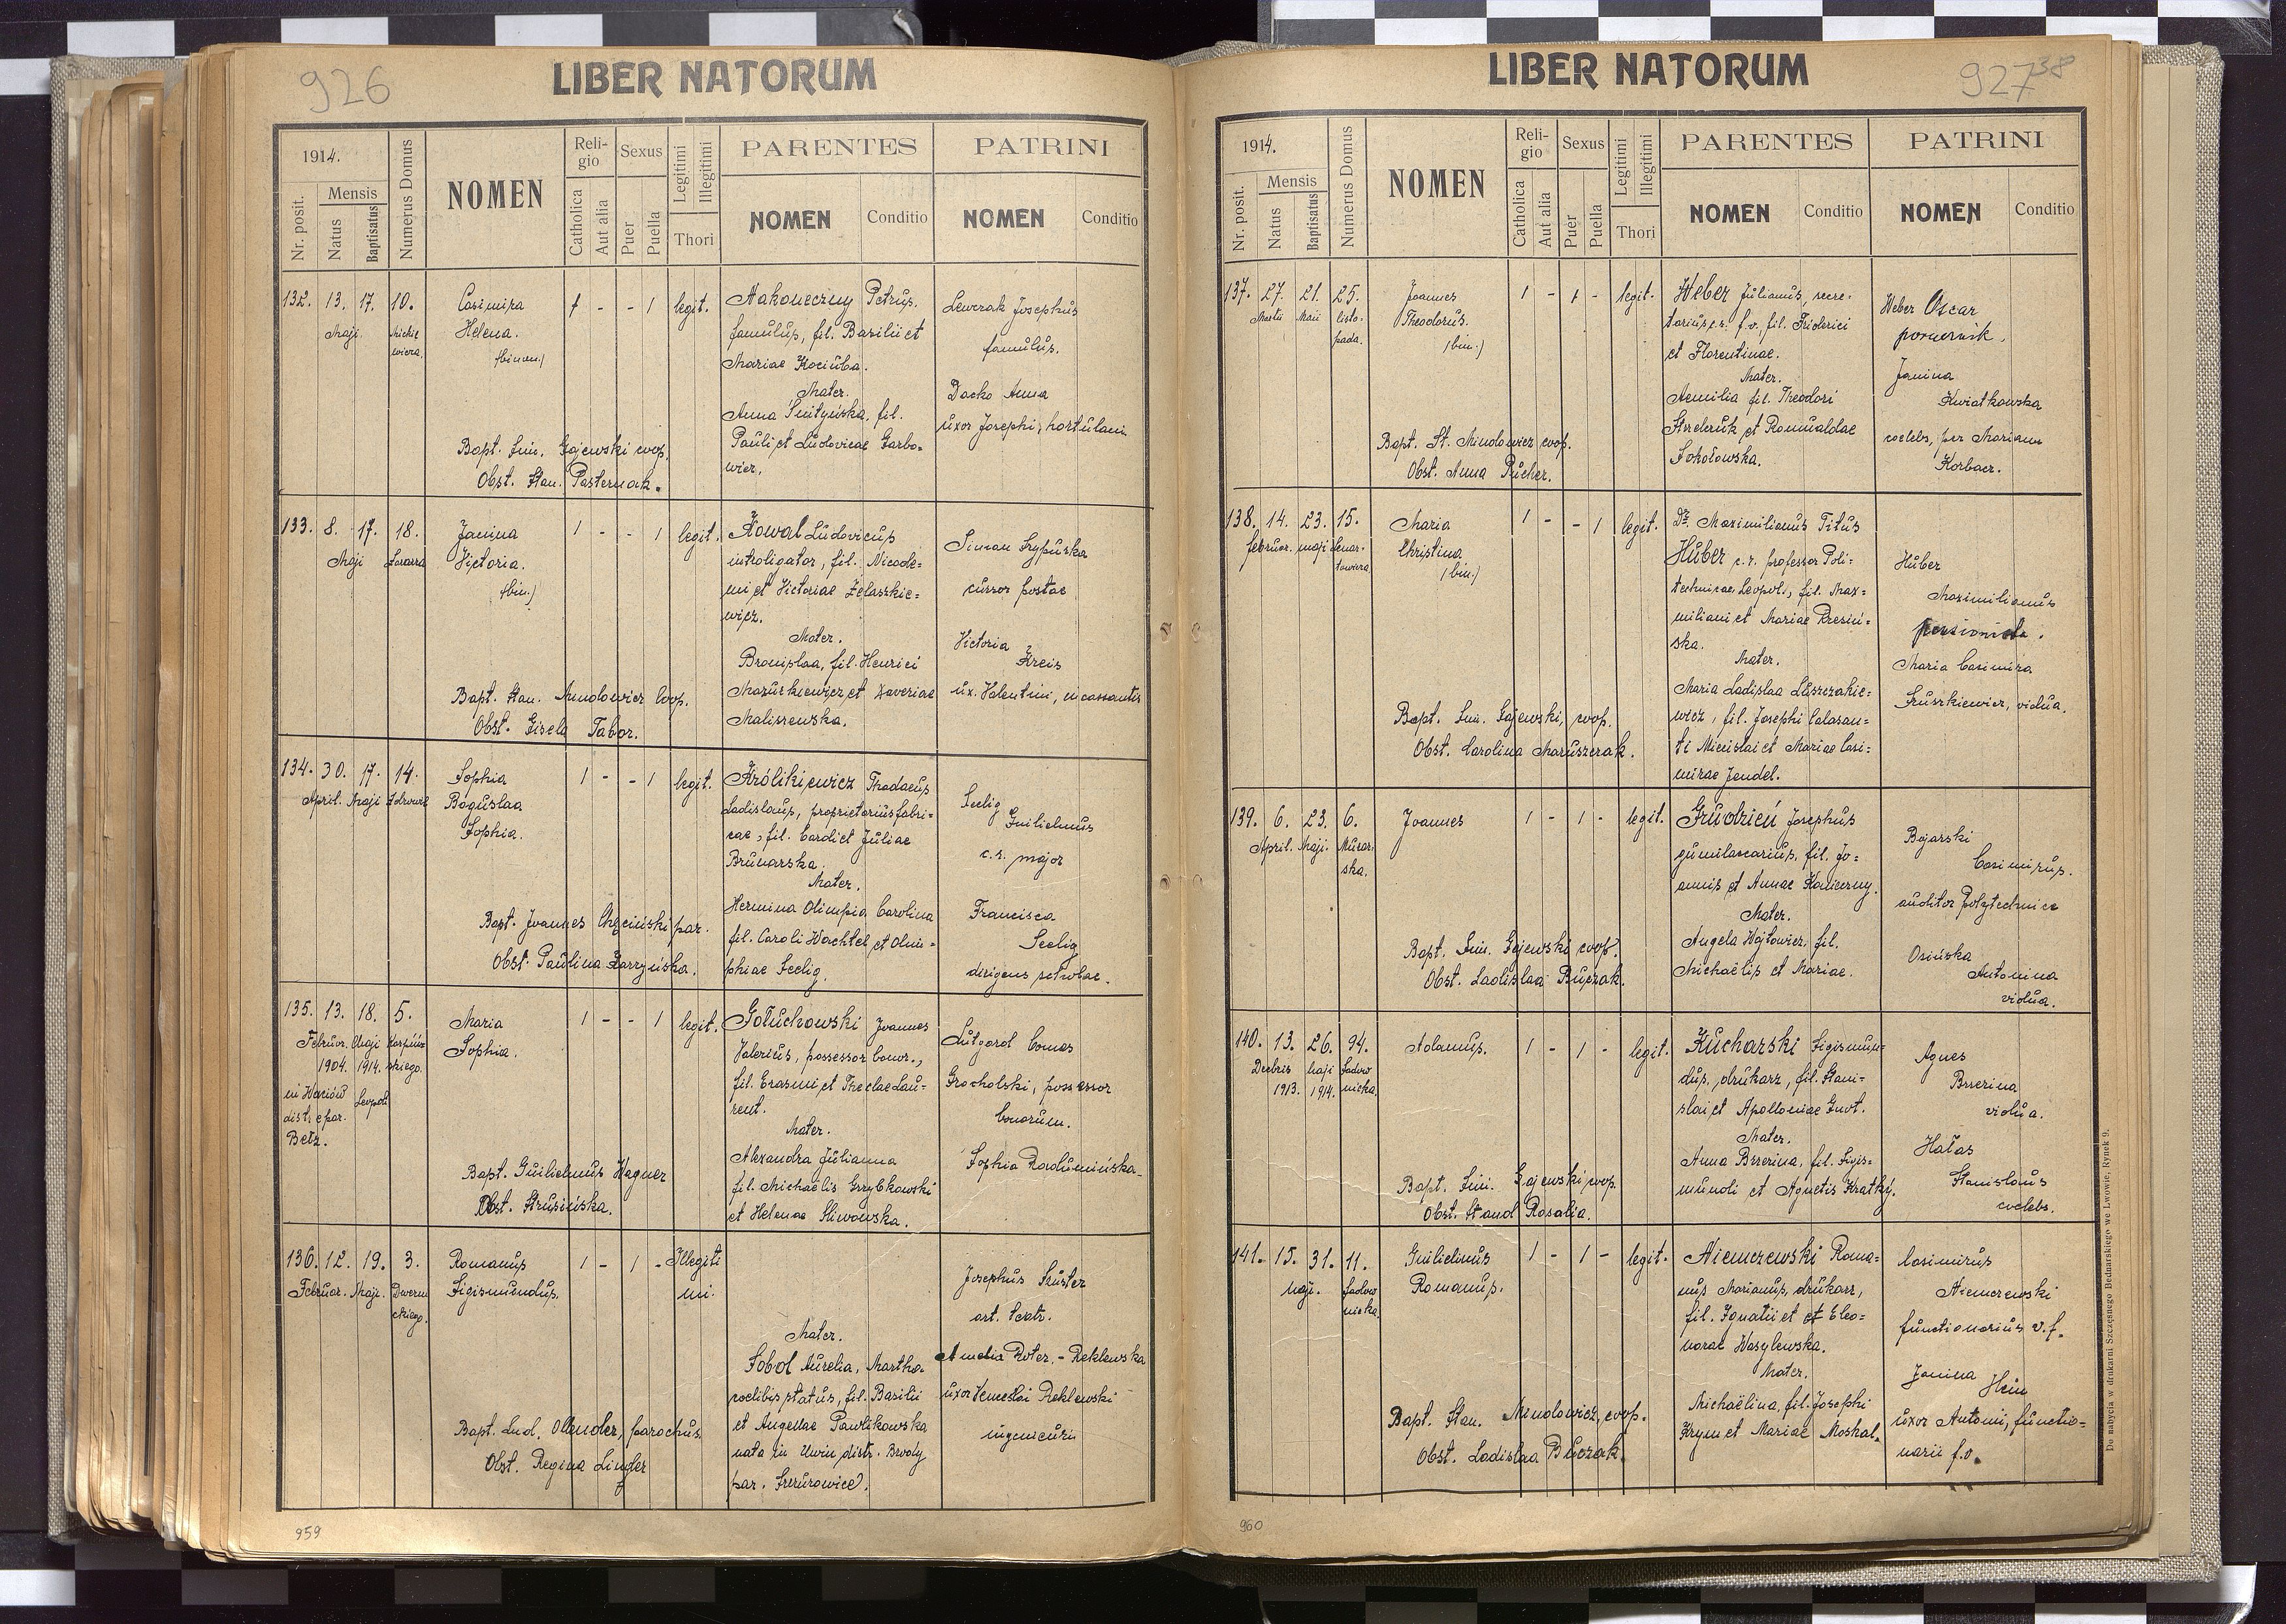 926
LIBER NATORUM
1914.
Nr. posit.
Mensis
Natus
Baptisatus
Numerus Domus
NOMEN
Religio
Catholica
Aut alia
Sexus
Puer
Puella
Legitimi
Illegitimi
Thori
PARENTES
NOMEN
Conditio
PATRINI
NOMEN
Conditio
132. 13. 17. 10.
Maji.
Casimira
Helena.
(binom.)
1 - - 1 legit.
Nakoneczny Petrus.
famulus, fil. Basilii et
Mariae Kociuba.
Mater.
Anna Smityńska, fil.
Pauli et Ludovicae Garbo-
wicz.
Lewczak Josephus
famulus.
Dacko Anna
uxor Josephi, hortulani
Bapt. Sim. Gajewski coop.
Obst. Stan. Pasternak.
133. 8. 17. 18.
Maji
Janina
Victoria.
(bin.)
1 - - 1 legit.
Kowal Ludovicus
introligator, fil. Nicode-
mi et Victoriae Żelaszkie-
wicz.
Mater.
Bronislaa, fil. Henrici
Mazurkiewicz et Xaveriae
Maliszewska.
cursor postae
Victoria
Kreis
ux. Valentini, incassantis
Bapt. Stan. Mindowicz Coop.
Obst. Gisela Tabor.
134. 30. 17. 14.
April. Maji
Sophia
Boguslaa
Sophia.
1 - - 1 legit.
Królikiewicz Thadaeus
Ladislaus, proprietarius fabri-
cae, fil. Caroli et Juliae
Brunarska.
Mater.
Hermina Olimpia Carolina
fil. Caroli Wachtel et Olim-
phiae Seelig.
Seelig
Guilielmus
c.r. major
Francisca
Seelig
dirigens scholae.
Bapt. Joannes Chęciński par.
Obst. Paulina Zarzyńska.
135. 13. 18. 5.
Februar. Maji
1904. 1914.
dist. et par.
Bełz.
Leopoli
Maria
Sophia.
1 - - 1 legit.
Gołuchowski Joannes
Valerius, possessor bonor.,
fil. Erasmi et Theclae Lau-
rent.
Mater.
Alexandra Julianna
fil. Michaëlis Grzybkowski
et Helenae Śliwowska.
Lutgard Comes
Grocholski, possessor
bonorum.
Sophia Radumińska
Bapt. Guilielmus Wagner
Obst. Strusińska.
136. 12. 19. 3.
Februar. Maji.
Dwerni
ckiego.
Romanus
Sigismundus.
1 - 1 - Illegiti
mi.
Mater.
Sobol Aurelia, Martha
coelibis status, fil. Basilii
et Angelae Pawlikowska
nata in Uwin, distr. Brody
par. Szczurowice.
Josephus Szuster
art. teatr.
Amelia Roter. - Reklewska
uxor Venceslai Reklewski
ingenieurii
Bapt. Lud. Ollender, parochus.
Obst. Regina Lingler
959
927
38
LIBER NATORUM
1914.
Nr. posit.
Mensis
Natus
Baptisatus
Numerus Domus
NOMEN
Religio
Catholica
Aut alia
Sexus
Puer
Puella
Legitimi
Illegitimi
Thori
PARENTES
NOMEN
Conditio
PATRINI
NOMEN
Conditio
137. 27. 21. 25.
Martii Maii listo-
pada.
Joannes
Theodorus.
(bin.)
1 - 1 - legit.
Weber Julianus, secre-
tarius c.r. f.v., fil. Friderici
et Florentinae.
Mater.
Aemilia fil. Theodori
Strzelczuk et Romualdae
Sokołowska.
Weber Oscar
pomornik.
Janina
Kwiatkowska
coelebs, per Mariam
Korbacz.
Bapt. St. Mindowicz coop.
Obst. Anna Pucher.
138. 14. 23. 15.
Februar. maji Lenar-
towicza
Maria
Christina
(bin.)
1 - - 1 legit.
Dr. Maximilianus Titus
Huber c.r. professor Poli-
technicae Leopol., fil. Max-
miliani et Mariae Brzesiń-
ska.
Mater.
Maria Ladislaa Łuszczakie-
wicz, fil. Josephi Calasan-
ti Mieislai et Mariae Casi-
mirae Jendel.
Huber
Maximilianus
pensionista.
Maria Casimira
Gruszkiewicz, vidua.
Bapt. Sim. Gajewski, coop.
Obst. Carolina Maruszczak.
139. 6. 23. 6.
April. Maji. Murar-
ska.
Joannes
1 - 1 - legit.
Grudzień Josephus
gumilascarius, fil. Jo-
annis et Annae Koniczny.
Mater.
Angela Wojtowicz, fil.
Michaëlis et Mariae.
Bojarski
Casimirus.
auditor polytechnice
Osińska
Antonina
vidua.
Bapt. Sim. Gajewski coop.
Obst. Ladislaa Buczak.
140. 13. 26. 94.
Decbris maji Sadow-
1913. 1914. nicka.
Adamus.
1 - 1 - legit.
Kucharski Sigismun-
dus, drukarz, fil. Stani-
slai et Apolloniae Gnot.
Mater.
Anna Brzezina, fil. Sigis-
mundi et Agnetis Kratký.
Agnes
Brzezina
vidua.
Hałas
Stanislaus
coelebs.
Bapt. Sim. Gajewski coop.
Obst. Staud Rosalia.
141. 15. 31. 11.
maji. Sadow-
nicka.
Guilielmus
Romanus.
1 - 1 - legit.
Niemczewski Roma-
nus Marianus, drukarz,
fil. Ignatii et et Eleo-
norae Wasylewska.
Mater.
Michaëlina, fil. Josephi
Krym et Mariae Moskal.
Casimirus
Niemczewski
functionarius v.f.
Janina Hein
uxor Antonii, functio-
narii f.v.
Bapt. Stan. Mindowicz, coop.
Obst. Ladislaa Buczak.
Do nabycia w drukarni Szczęsnego Bednarskiego we Lwowie, Rynek 9.
960